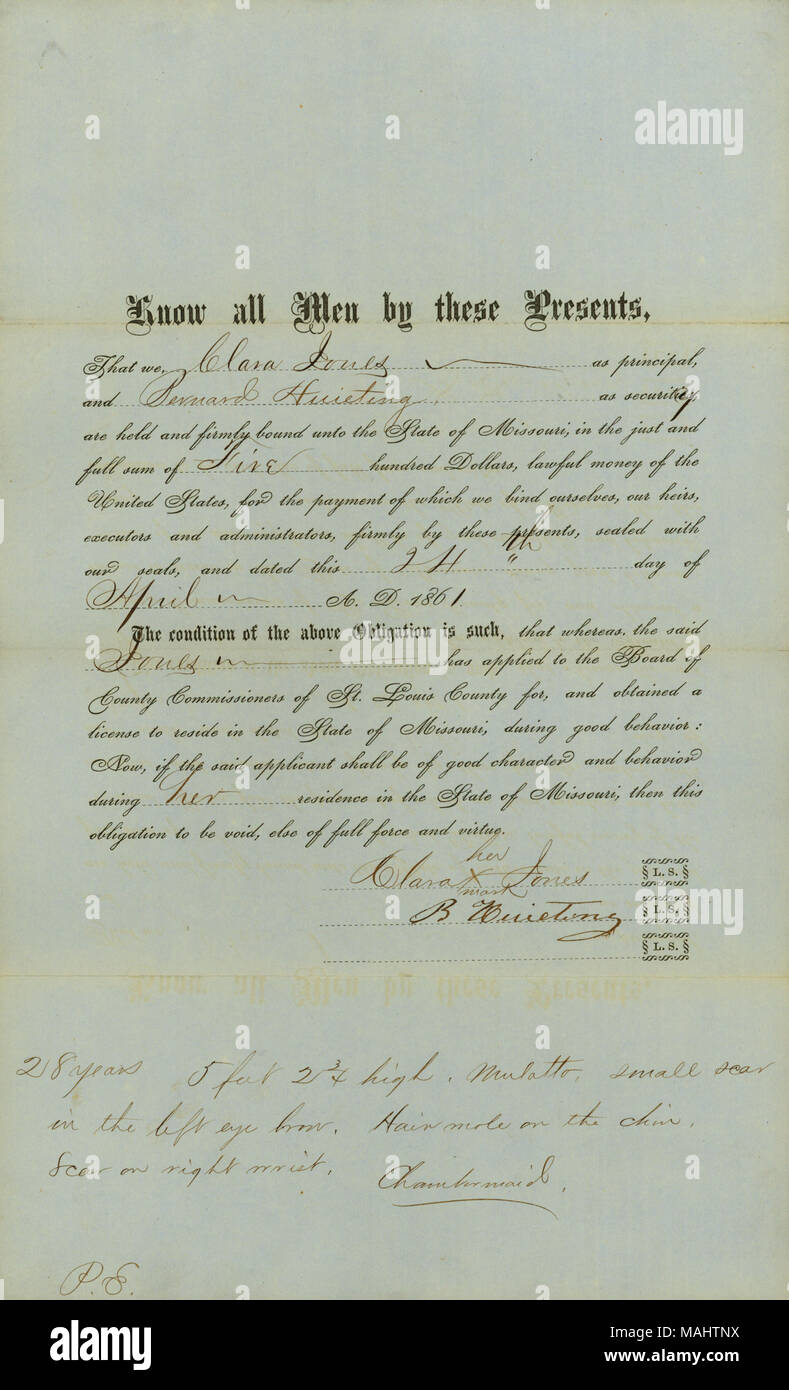 Know all Men by these Presents,
That we, Clara Jones as principal,
and Bernard Huieting as security,
are held and firmly bound unto the State of Missouri, in the just and
full sum of Five hundred Dollars, lawful money of the
United States, for the payment of which we bind ourselves, our heirs,
executors and administrators, firmly by these presents, sealed with
our seals, and dated this 24 th day of
April A. D. 1861.
The condition of the above Obligation is such, that whereas, the said
Jones has applied to the Board of
County Commissioners of St. Louis County for, and obtained a
license to reside in the State of Missouri, during good behavior:
Now, if the said applicant shall be of good character and behavior
during her residence in the State of Missouri, then this
obligation to be void, else of full force and virtue.
her
Clara X Jones L. S.
mark
B Huieting L. S.
L. S.
28 years 5 feet 2 3/4 high. Mulatto, small scar
in the left eye brow. Hair mole on the chin.
Scar on right wrist. Chambermaid.
P.E.
a alamy
alamy
Image ID: MAHTNX
www.alamy.com